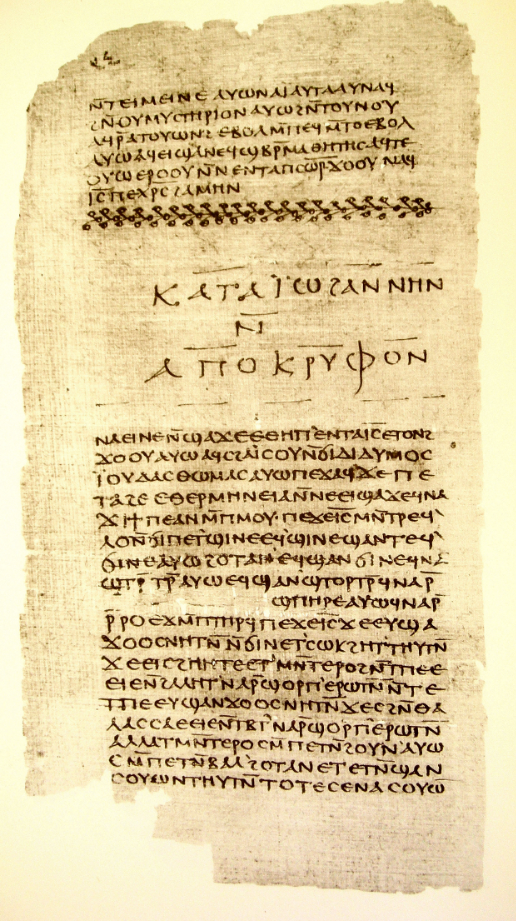 ⲛ̄ⲧⲉⲓⲙⲉⲓⲛⲉ ⲁⲩⲱ ⲛⲁⲓ ⲁⲩⲧⲁⲁⲩ ⲛⲁϥ
ϩⲛ̄ⲟⲩⲙⲩⲥⲧⲏⲣⲓⲟⲛ ⲁⲩⲱ ϩⲛ̄ⲧⲟⲩⲛⲟⲩ
ⲁϥⲣ̄ⲁⲧⲟⲩⲱⲛϩ ⲉⲃⲟⲗ ⲙ̄ⲡⲉϥⲙ̄ⲧⲟ ⲉⲃⲟⲗ
ⲁⲩⲱ ⲁϥⲉⲓ ϣⲁ ⲛⲉϥϣⲃⲣⲙⲁⲑⲏⲧⲏⲥ ⲁϥⲧⲉ
ⲟⲩⲱ ⲉⲣⲟⲟⲩ ⲛ̄ⲛⲉⲛⲧⲁⲡⲥⲱ̄ⲣ̄ ϫⲟⲟⲩ ⲛⲁϥ
ⲓ̄ⲥ̄ ⲡⲉⲭ̄ⲣ̄ⲥ̄ ϩⲁⲙⲏⲛ
ⲕⲁⲧⲁ ⲓ̈ⲱϩⲁⲛⲛⲏⲛ
ⲛ̄
ⲁⲡⲟⲕⲣⲩⲫⲟⲛ
ⲛⲁⲉⲓ ⲛⲉ ⲛ̄ϣⲁϫⲉ ⲉⲑⲏⲡ ⲉⲛⲧⲁⲓ̄ⲥ̄ ⲉⲧⲟⲛϩ
ϫⲟⲟⲩ ⲁⲩⲱ ⲁϥⲥϩⲁⲓⲥⲟⲩ ⲛ̄ϭⲓ ⲇⲓⲇⲩⲙⲟⲥ
ⲓ̈ⲟⲩⲇⲁⲥ ⲑⲱⲙⲁⲥ ⲁⲩⲱ ⲡⲉϫⲁϥ ϫⲉ ⲡⲉ
ⲧⲁϩⲉ ⲉⲑⲉⲣⲙⲏⲛⲉⲓⲁ ⲛ̄ⲛⲉⲉⲓϣⲁϫⲉ ϥⲛⲁ
ϫⲓ ϯⲡⲉ ⲁⲛ ⲙ̄ⲡⲙⲟⲩ· ⲡⲉϫⲉ ⲓ̄ⲥ̄ ⲙⲛ̄ⲧⲣⲉϥ
ⲗⲟ ⲛ̄ϭⲓ ⲡⲉⲧϣⲓⲛⲉ ⲉϥϣⲓⲛⲉ ϣⲁⲛⲧⲉϥ
ϭⲓⲛⲉ ⲁⲩⲱ ϩⲟⲧⲁⲛ ⲉϥϣⲁⲛϭⲓⲛⲉ ϥⲛⲁ
ϣⲧⲣ̄ⲧⲣ̄ ⲁⲩⲱ ⲉϥϣⲁⲛϣⲧⲟⲣⲧⲣ̄ ϥⲛⲁⲣ̄
ϣⲡⲏⲣⲉ ⲁⲩⲱ ϥⲛⲁⲣ̄
ⲣ̄ⲣⲟ ⲉϫⲙ̄ ⲡⲧⲏⲣϥ ⲡⲉϫⲉ ⲓ̄ⲥ̄ ϫⲉ ⲉⲩϣⲁ
ϫⲟⲟⲥ ⲛⲏⲧⲛ̄ ⲛ̄ϭⲓ ⲛⲉⲧⲥⲱⲕ ϩⲏⲧ ⲑⲏⲩⲧⲛ̄
ϫⲉ ⲉⲓⲥϩⲏⲏⲧⲉ ⲉⲧⲙⲛ̄ⲧⲉⲣⲟ ϩⲛ̄ ⲧⲡⲉ ⲉ
ⲉⲓⲉ ⲛ̄ϩⲁⲗⲏⲧ ⲛⲁⲣ̄ϣⲟⲣⲡ ⲉⲣⲱⲧⲛ̄ ⲛ̄ⲧⲉ
ⲧⲡⲉ ⲉⲩϣⲁⲛϫⲟⲟⲥ ⲛⲏⲧⲛ̄ ϫⲉ ⲥϩⲛ̄ ⲑⲁ
ⲗⲁⲥⲥⲁ ⲉⲉⲓⲉ ⲛ̄ⲧⲃⲧ ⲛⲁⲣ̄ϣⲟⲣⲡ ⲉⲣⲱⲧⲛ̄
ⲁⲗⲗⲁ ⲧⲙⲛ̄ⲧⲉⲣⲟ ⲥⲙ̄ⲡⲉⲧⲛ̄ϩⲟⲩⲛ ⲁⲩⲱ
ⲥⲙ̄ⲡⲉⲧⲛ̄ⲃⲁⲗ ϩⲟⲧⲁⲛ ⲉⲧⲉⲧⲛ̄ϣⲁⲛ
ⲥⲟⲩⲱⲛ ⲧⲏⲩⲧⲛ̄ ⲧⲟⲧⲉ ⲥⲉⲛⲁⲥⲟⲩⲱ